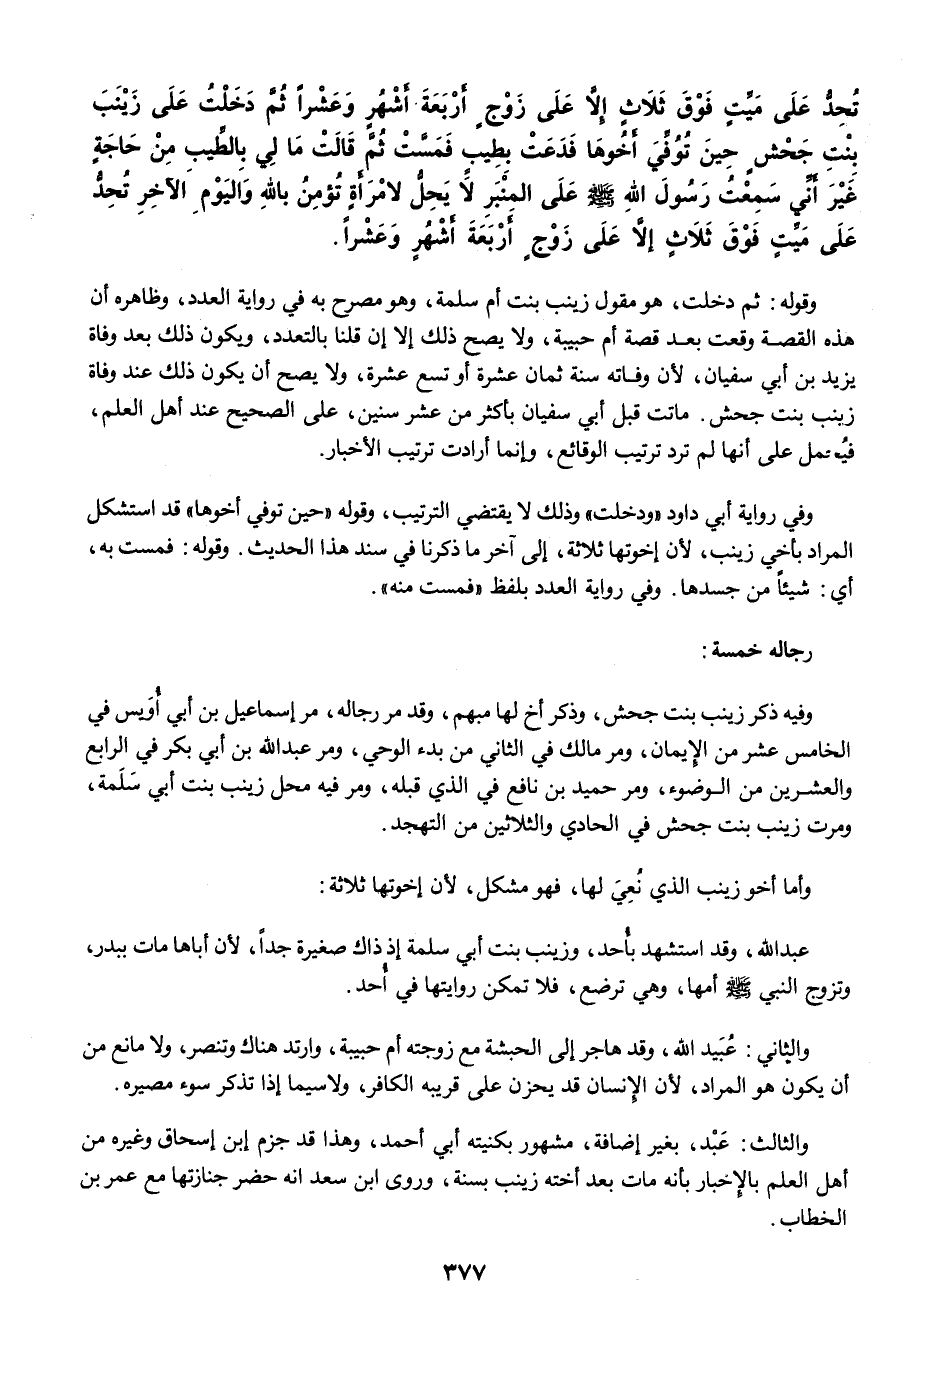 تُحِدُّ عَلَى مَيِّتٍ فَوْقَ ثَلَاثٍ إِلَّا عَلَى زَوْجٍ أَرْبَعَةَ أَشْهُرٍ وَعَشْراً ثُمَّ دَخَلْتُ عَلَى زَيْنَبَ
بِنْتِ جَحْشٍ حِينَ تُوُفِّيَ أَخُوهَا فَدَعَتْ بِطِيبٍ فَمَسَّتْ ثُمَّ قَالَتْ مَا لِي بِالطِّيبِ مِنْ حَاجَةٍ
غَيْرَ أَنِّي سَمِعْتُ رَسُولَ اللهِ ﷺ عَلَى المِنْبَرِ لَا يَحِلُّ لامْرَأَةٍ تُؤمِنُ بِاللهِ وَاليَوْمِ الآخِرِ تُحِدُّ
عَلَى مَيِّتٍ فَوْقَ ثَلَاثٍ إلَّا عَلَى زَوْجٍ أَرْبَعَةَ أَشْهُرٍ وَعَشْراً.
وقوله: ثم دخلت، هو مقول زينب بنت أم سلمة، وهو مصرح به في رواية العدد، وظاهره أن
هذه القصة وقعت بعد قصة أم حبيبة، ولا يصح ذلك إلا إن قلنا بالتعدد، ويكون ذلك بعد وفاة
يزيد بن أبي سفيان، لأن وفاته سنة ثمان عشرة أو تسع عشرة، ولا يصح أن يكون ذلك عند وفاة
زينب بنت جحش. ماتت قبل أبي سفيان بأكثر من عشر سنين، على الصحيح عند أهل العلم،
فيُحمل على أنها لم ترد ترتيب الوقائع، وإنما أرادت ترتيب الأخبار.
وفي رواية أبي داود «ودخلت» وذلك لا يقتضي الترتيب، وقوله «حين توفي أخوها» قد استشكل
المراد بأخي زينب، لأن إخوتها ثلاثة، إلى آخر ما ذكرنا في سند هذا الحديث. وقوله: فمست به،
أي: شيئاً من جسدها. وفي رواية العدد بلفظ «فمست منه».
رجاله خمسة:
وفيه ذكر زينب بنت جحش، وذكر أخ لها مبهم، وقد مر رجاله، مر إسماعيل بن أبي أُوَيس في
الخامس عشر من الإيمان، ومر مالك في الثاني من بدء الوحي، ومر عبدالله بن أبي بكر في الرابع
والعشرين من الوضوء، ومر حميد بن نافع في الذي قبله، ومر فيه محل زينب بنت أبي سَلَمة،
ومرت زينب بنت جحش في الحادي والثلاثين من التهجد.
وأما أخو زينب الذي نُعِيَ لها، فهو مشكل، لأن إخوتها ثلاثة:
عبدالله، وقد استشهد بأُحد، وزينب بنت أبي سلمة إذ ذاك صغيرة جداً، لأن أباها مات ببدر،
وتزوج النبي ﷺ أمها، وهي ترضع، فلا تمكن روايتها في أُحد.
والثاني: عُبَيد الله، وقد هاجر إلى الحبشة مع زوجته أم حبيبة، وارتد هناك وتنصر، ولا مانع من
أن يكون هو المراد، لأن الإنسان قد يحزن على قريبه الكافر، ولاسيما إذا تذكر سوء مصيره.
والثالث: عَبْد، بغير إضافة، مشهور بكنيته أبي أحمد، وهذا قد جزم إبن إسحاق وغيره من
أهل العلم بالإخبار بأنه مات بعد أخته زينب بسنة، وروى ابن سعد انه حضر جنازتها مع عمر بن
الخطاب.
٣٧٧